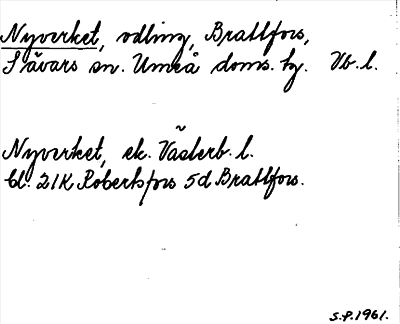 Nyverket, odling, Brattfors,
Sävars sn. Umeå doms. hg. Vb. l.
Nyverket, ek. Västerb. l.
bl. 21K Robertsfors 5d Brattfors.
S.P. 1961.